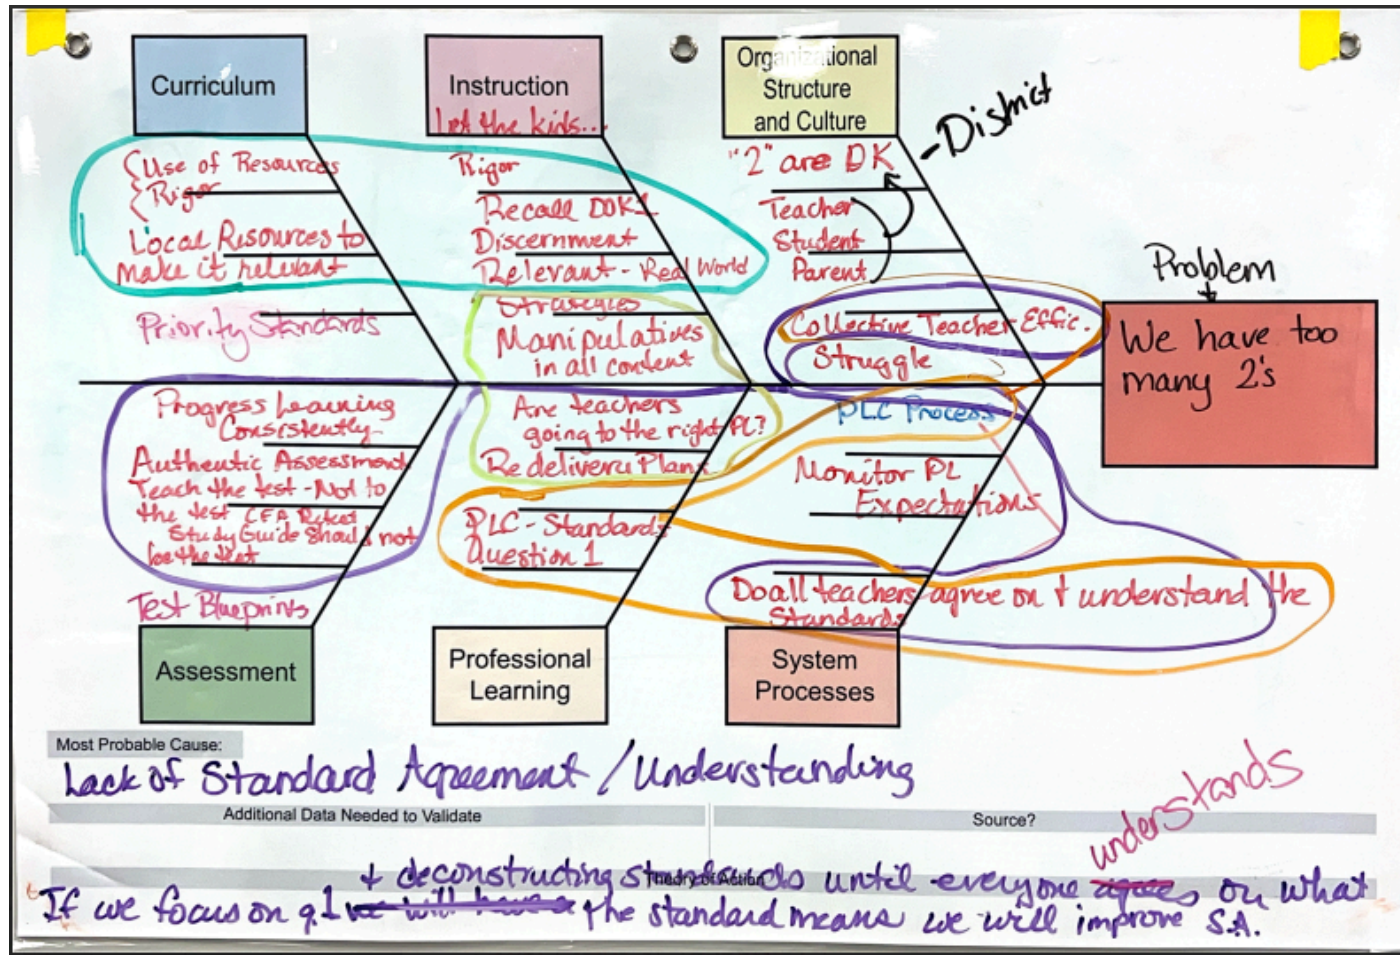 Curriculum
Instruction
Let the kids...
Organizational
Structure
and Culture
- District
Use of Resources
Rigor
Local Resources to
make it relevant
Priority Standards
Rigor
Recall DOK1
Discernment
Relevant - Real World
Strategies
Manipulatives
in all content
"2" are DK
Teacher
Student
Parent
Collective Teacher Effic.
Struggle
Problem
We have too
many 2's
Progress Learning
Consistently
Authentic Assessment
Teach the test - Not to
the test CFA
Study Guide Should not
be the test
Test Blueprints
Are teachers
going to the right PL?
Redelivery Plans
PLC - Standards
Question 1
PLC Process
Monitor PL
Expectations
Do all teachers agree on + understand the
Standards
Assessment
Professional
Learning
System
Processes
Most Probable Cause:
Lack of Standard Agreement / Understanding
Additional Data Needed to Validate
Source?
understands
Theory of Action
+ deconstructing standards until everyone agrees on what
If we focus on q.1 we will have the standard means we will improve S.A.